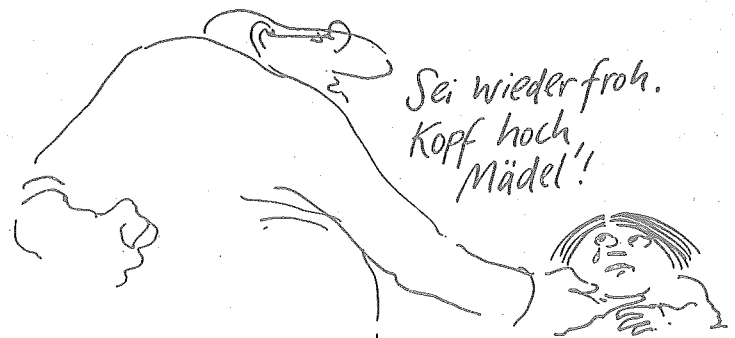 Sei wieder froh.
Kopf hoch,
Mädel!